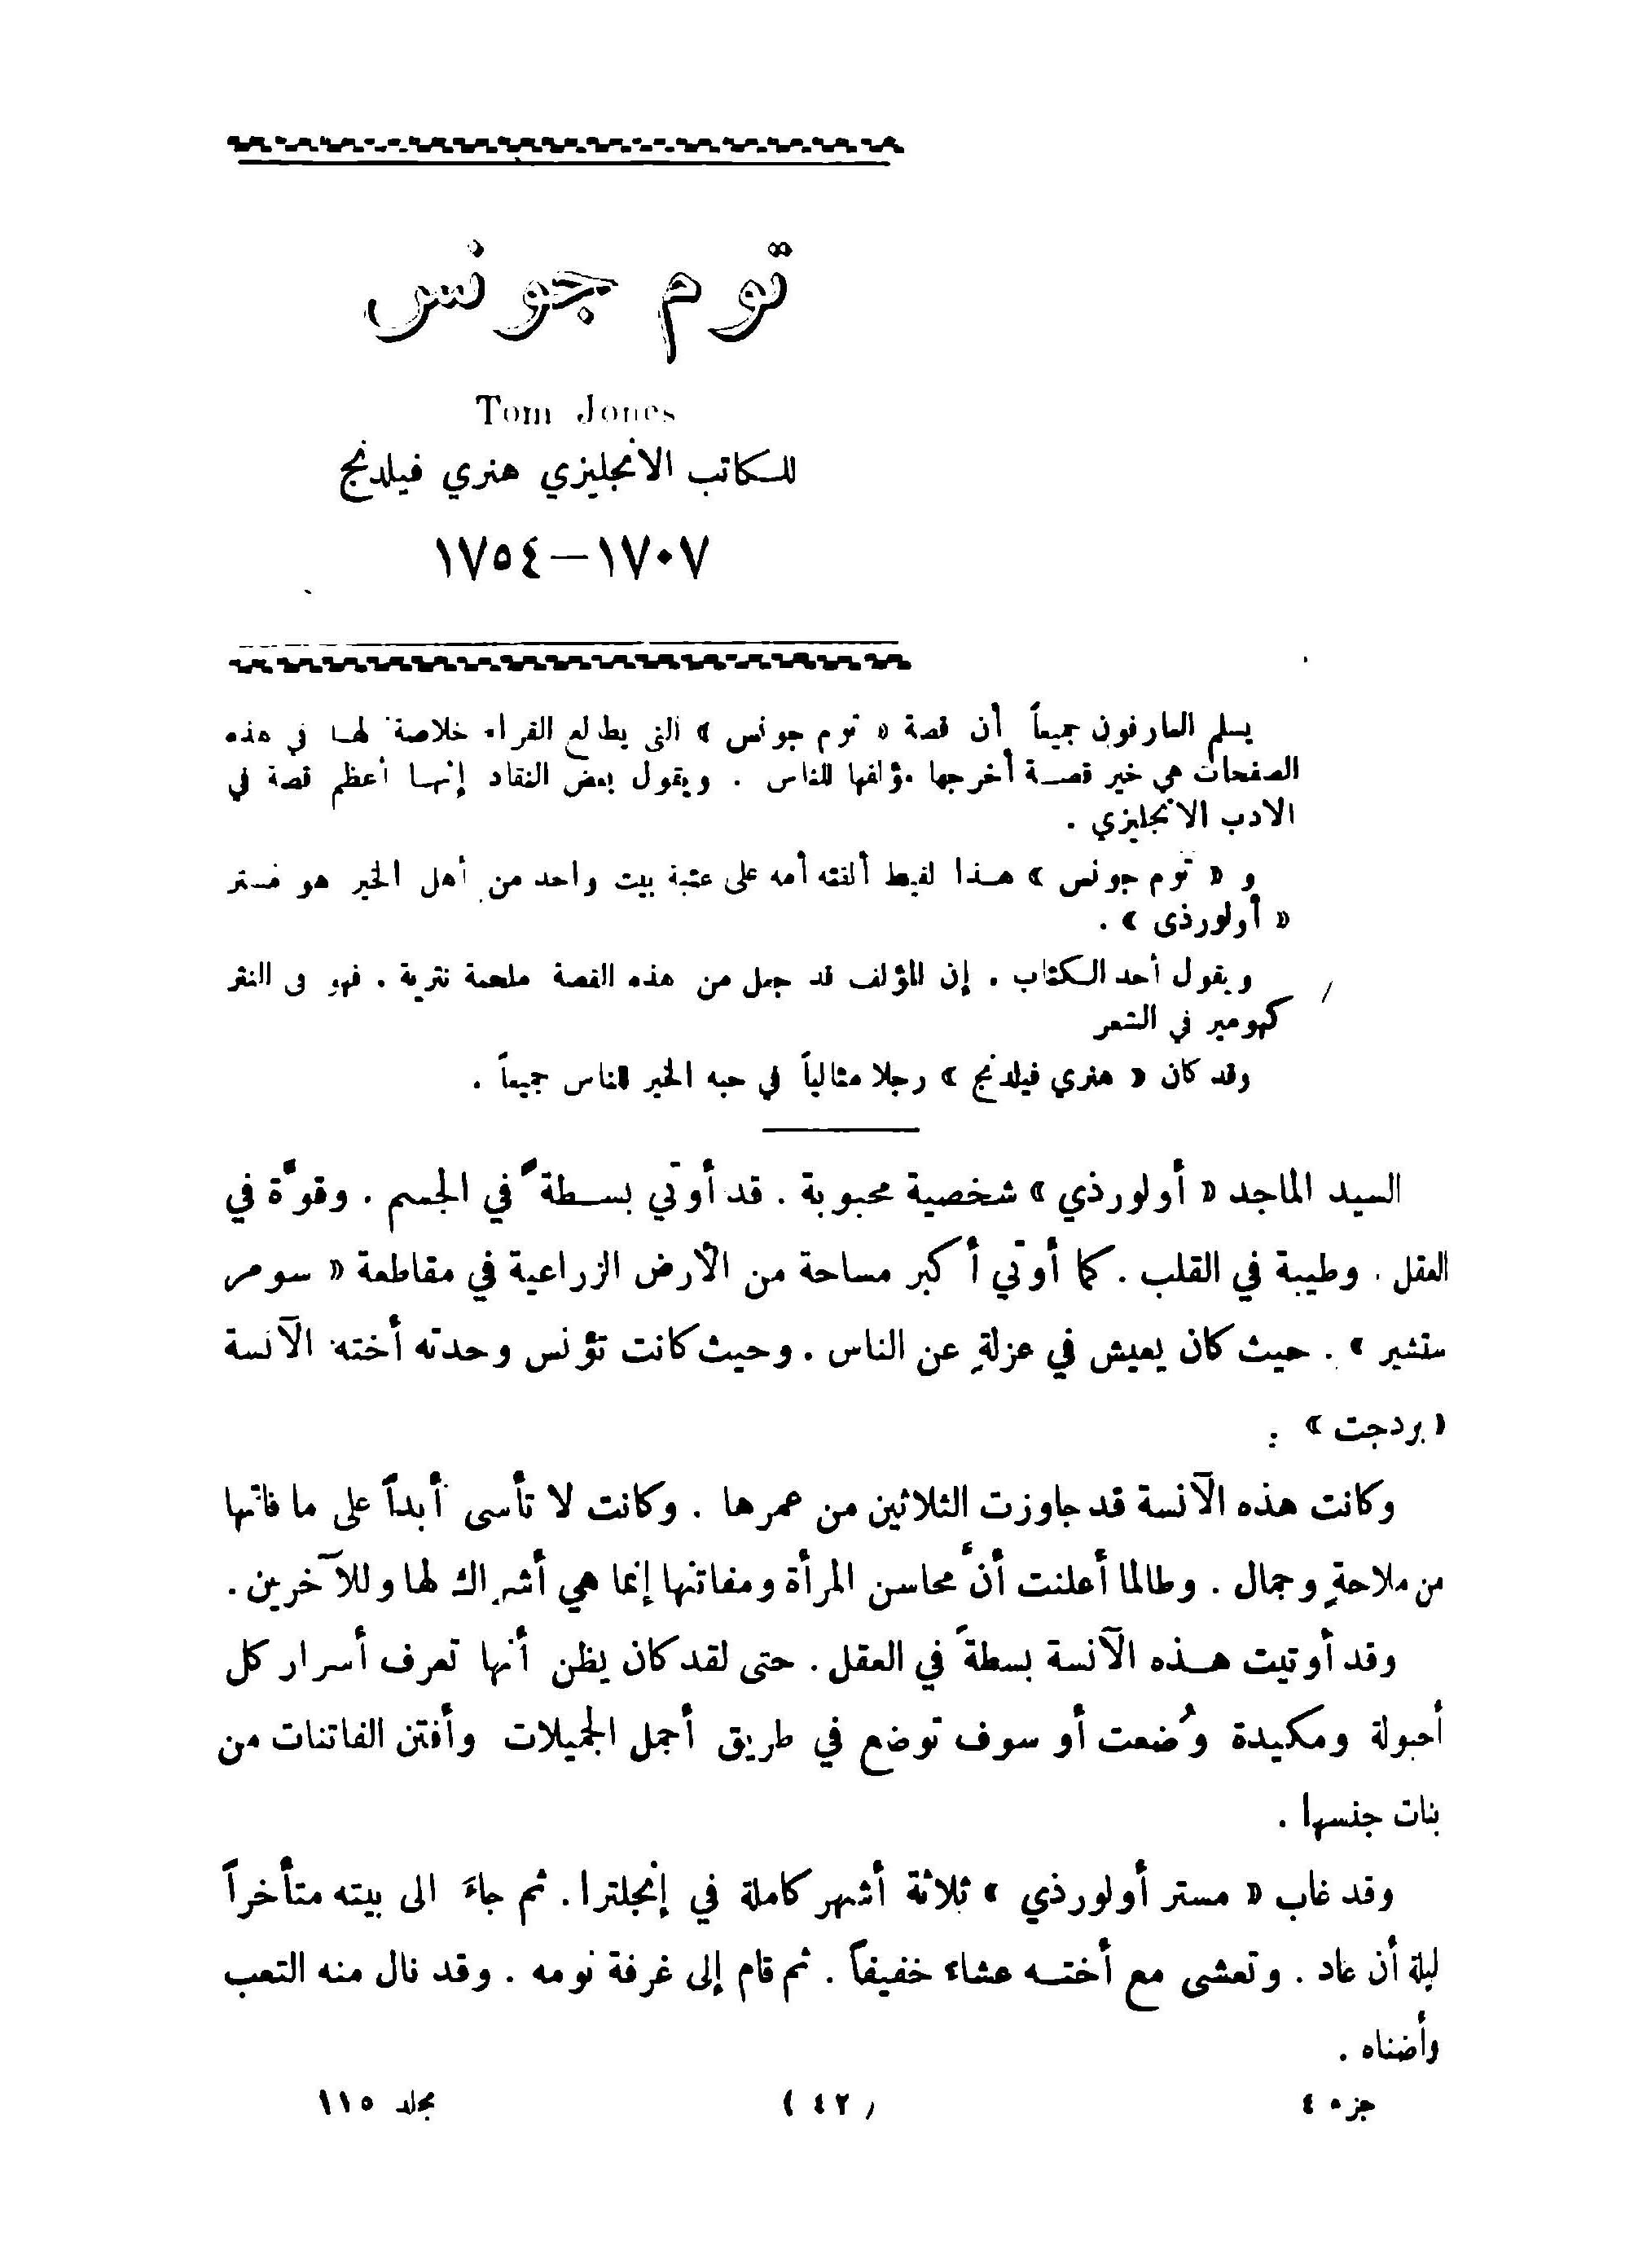 توم جونس
Tom Jones
للكاتب الانجليزي هنري فيلدنج
١٧٠٧ — ١٧٥٤
يسلم العارفون جميعاً أن قصة « توم جونس » التي يطالع القراء خلاصة لها في هذه
الصفحات هي خير قصة أخرجها مؤلفها للناس . ويقول بعض النقاد إنها أعظم قصة في
الادب الانجليزي .
و « توم جونس » هذا لقيط ألقته أمه على عتبة بيت واحد من أهل الخير هو مستر
« أولورذى » .
ويقول أحد الكتاب . إن المؤلف قد جعل من هذه القصة ملحمة نثرية . فهو في النثر
كهومير في الشعر
وقد كان « هنري فيلدنج » رجلا مثالياً في حبه الخير للناس جميعاً .
السيد الماجد « أولورذي » شخصية محبوبة . قد أوتي بسطةً في الجسم . وقوَّة في
العقل . وطيبة في القلب . كما أوتي أكبر مساحة من الأرض الزراعية في مقاطعة « سومر
ستشير » . حيث كان يعيش في عزلةٍ عن الناس . وحيث كانت تؤنس وحدته أخته الآنسة
« بردجت » :
وكانت هذه الآنسة قد جاوزت الثلاثين من عمرها . وكانت لا تأسى أبداً على ما فاتها
من ملاحةٍ وجمال . وطالما أعلنت أنَّ محاسن المرأة ومفاتنها إنما هي أشراك لها وللآخرين .
وقد أوتيت هذه الآنسة بسطةً في العقل . حتى لقد كان يظن أنها تعرف أسرار كل
أحبولة ومكيدة وُضعت أو سوف توضع في طريق أجمل الجميلات وأفتن الفاتنات من
بنات جنسها .
وقد غاب « مستر أولورذي » ثلاثة أشهر كاملة في إنجلترا . ثم جاءَ الى بيته متأخراً
ليلة أن عاد . وتعشى مع أخته عشاء خفيفاً . ثم قام إلى غرفة نومه . وقد نال منه التعب
وأضناه .
جزء ٤ (٤٢) مجلد ١١٥